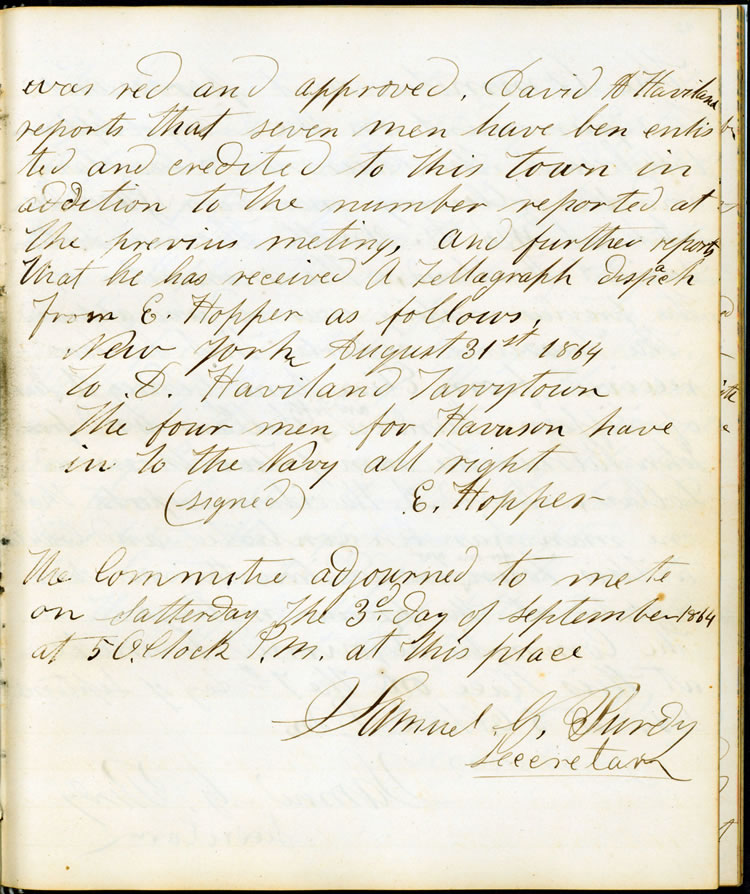 was red and approved. David A Haviland
reports that seven men have ben enlis
ted and credited to this town in
addition to the number reported at
the previus meting, and further reports
that he has received A Tellagraph dispach
from E. Hopper as follows,
New York August 31st 1864
to D. Haviland Tarrytown
The four men for Harrison have
in to the Navy all right
(signed) E. Hopper
The Committe adjourned to mete
on Satterday the 3d day of September 1864
at 5 O.Clock P.M. at this place
Samuel G. Purdy
Secretary